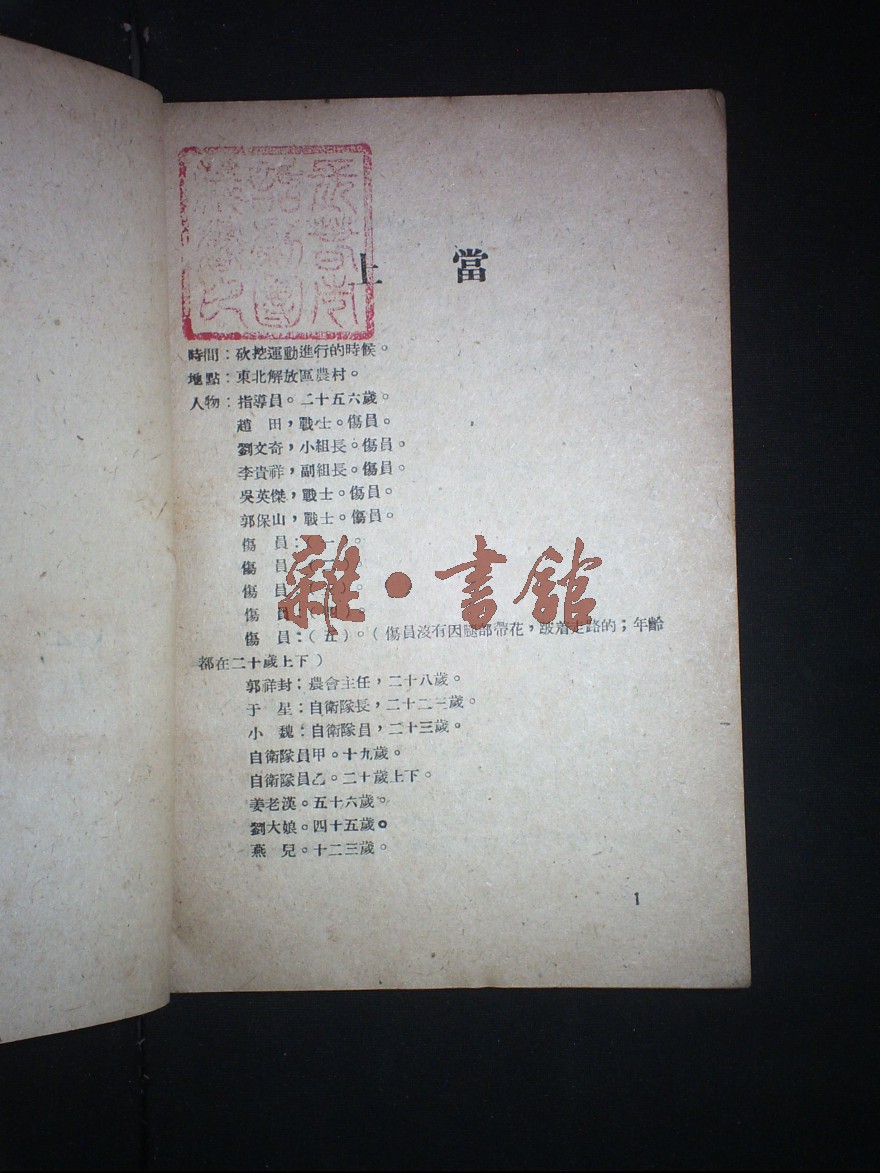 上當
時間：砍挖運動進行的時候。
地點：東北解放區農村。
人物：指導員。二十五六歲。
趙　田，戰士。傷員。
劉文奇，小組長。傷員。
李貴祥，副組長。傷員。
吳英傑，戰士。傷員。
郭保山，戰士。傷員。
傷　員：（一）。
傷　員：
傷　員：
傷　員：（四）。
傷　員：（五）。（傷員沒有因腿部帶花，跛着走路的；年齡
都在二十歲上下）
郭祥封：農會主任，二十八歲。
于　星：自衛隊長，二十二三歲。
小　魏：自衛隊員，二十三歲。
自衛隊員甲。十九歲。
自衛隊員乙。二十歲上下。
姜老漢。五十六歲。
劉大娘。四十五歲。
燕　兒。十二三歲。
1
雜·書館